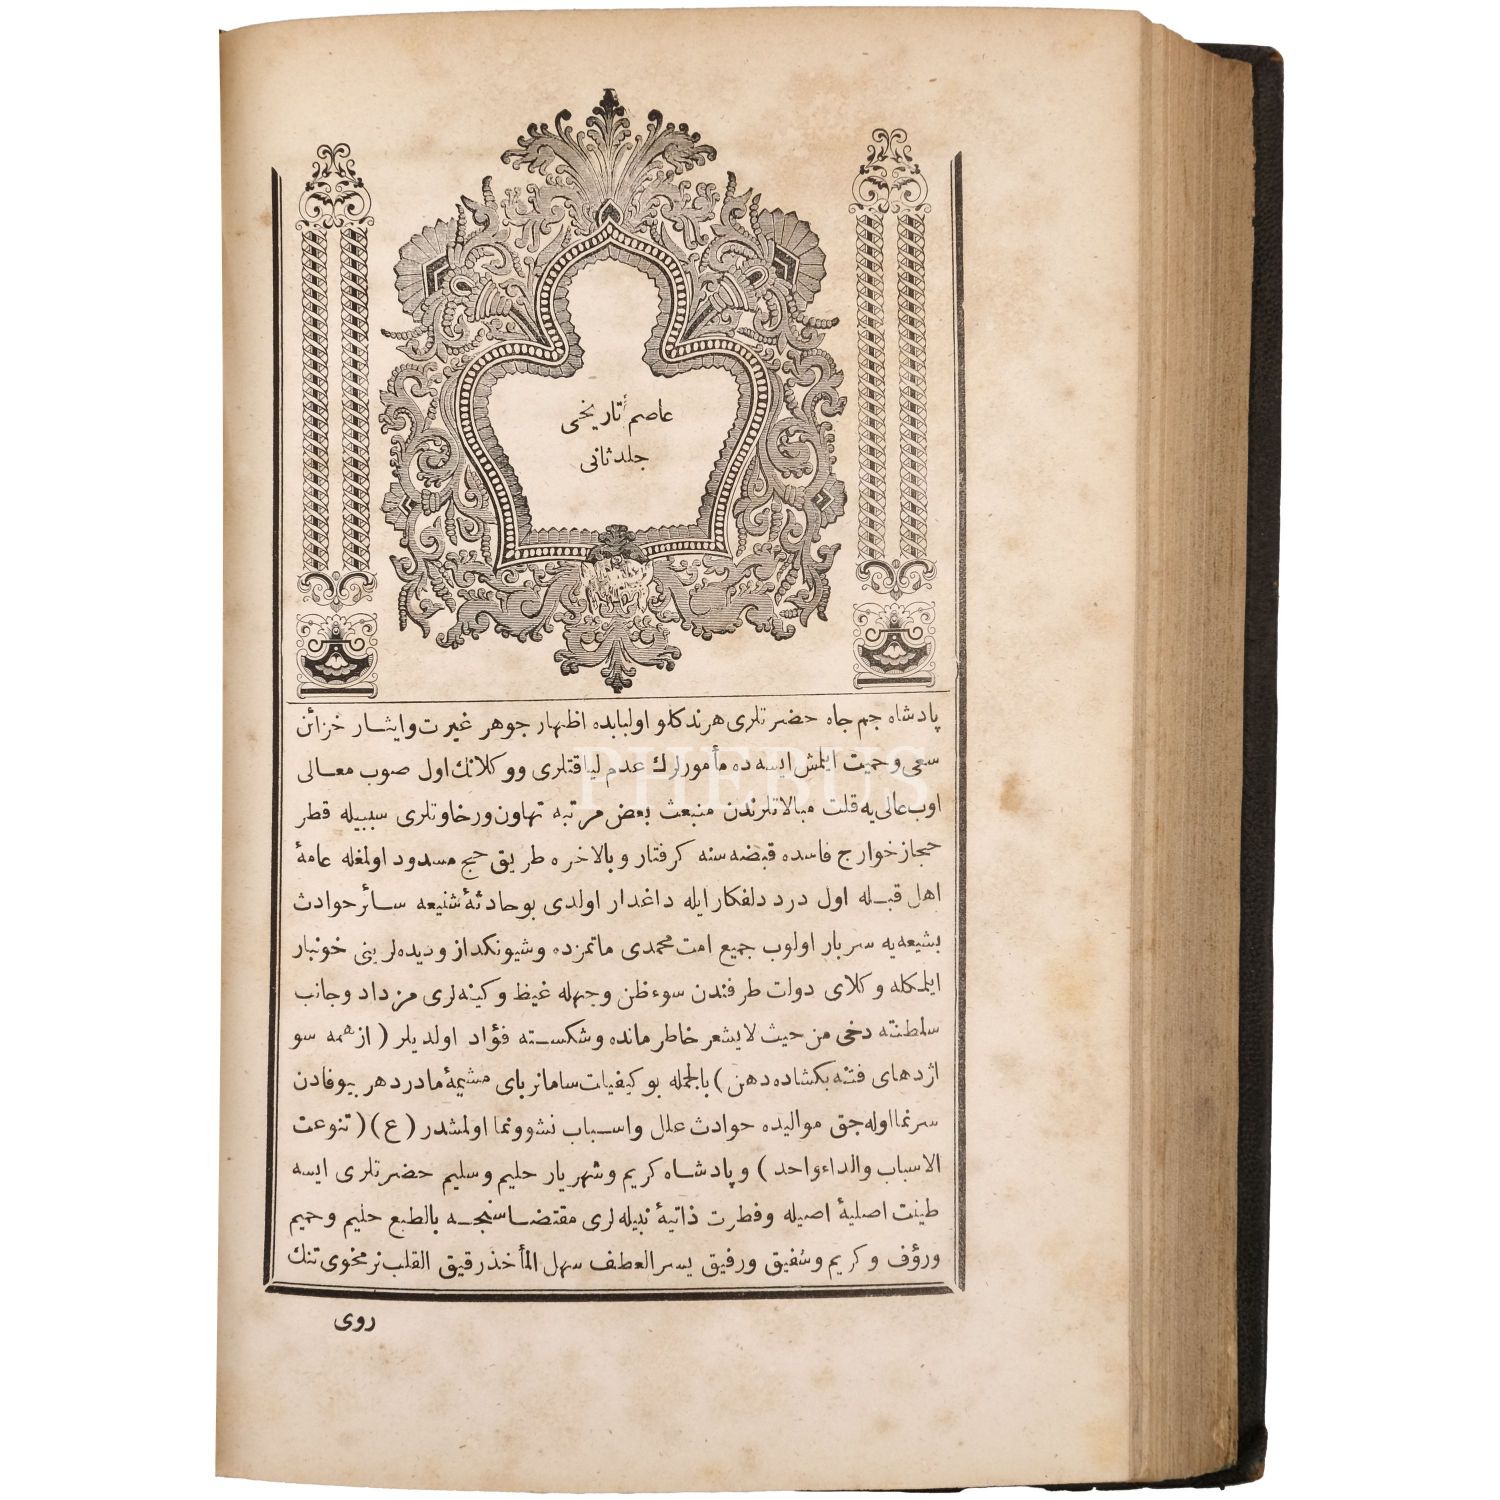 عاصم تاريخى
جلد ثانى
پادشاه جم جاه حضرتلرى هرندكلو اولبابده اظهار جوهر غيرت وايثار خزائن
سعى وحميت ايلمش ايسه ده مأمورلرك عدم لياقتلرى ووكلانك اول صوب معالى
اوب عالى يه قلت مبالاتلرندن منبعث بعض مرتبه تهاون ورخاوتلرى سببيله قطر
حجاز خوارج فاسده قبضه سنه كرفتار وبالاخره طريق حج مسدود اولمغله عامهٔ
اهل قبله اول درد دلفكار ايله داغدار اولدى بوحادثهٔ شنيعه سائر حوادث
بشيعه يه سربار اولوب جميع امت محمدى ماتمزده وشيونكداز وديده لرينى خونبار
ايلمكله وكلاى دولت طرفندن سوءظن وجهله غيظ وكينه لرى مزداد وجانب
سلطنته دخى من حيث لايشعر خاطر مانده وشكسته فؤاد اولديلر (از همه سو
اژدهاى فتنه بكشاده دهن) بالجمله بو كيفيات سامانرباى مشيمهٔ مادر دهر بيوفادن
سرنما اوله جق مواليده حوادث علل واسباب نشوونما اولمشدر (ع) (تنوعت
الاسباب والداء واحد) وپادشاه كريم وشهريار حليم وسليم حضرتلرى ايسه
طينت اصليهٔ اصيله وفطرت ذاتيهٔ نبيله لرى مقتضاسنجه بالطبع حليم وحميم
ورؤف وكريم وشفيق ورفيق يسر العطف سهل المأخذ رقيق القلب نرمخوى تنك
روى
PHEBUS